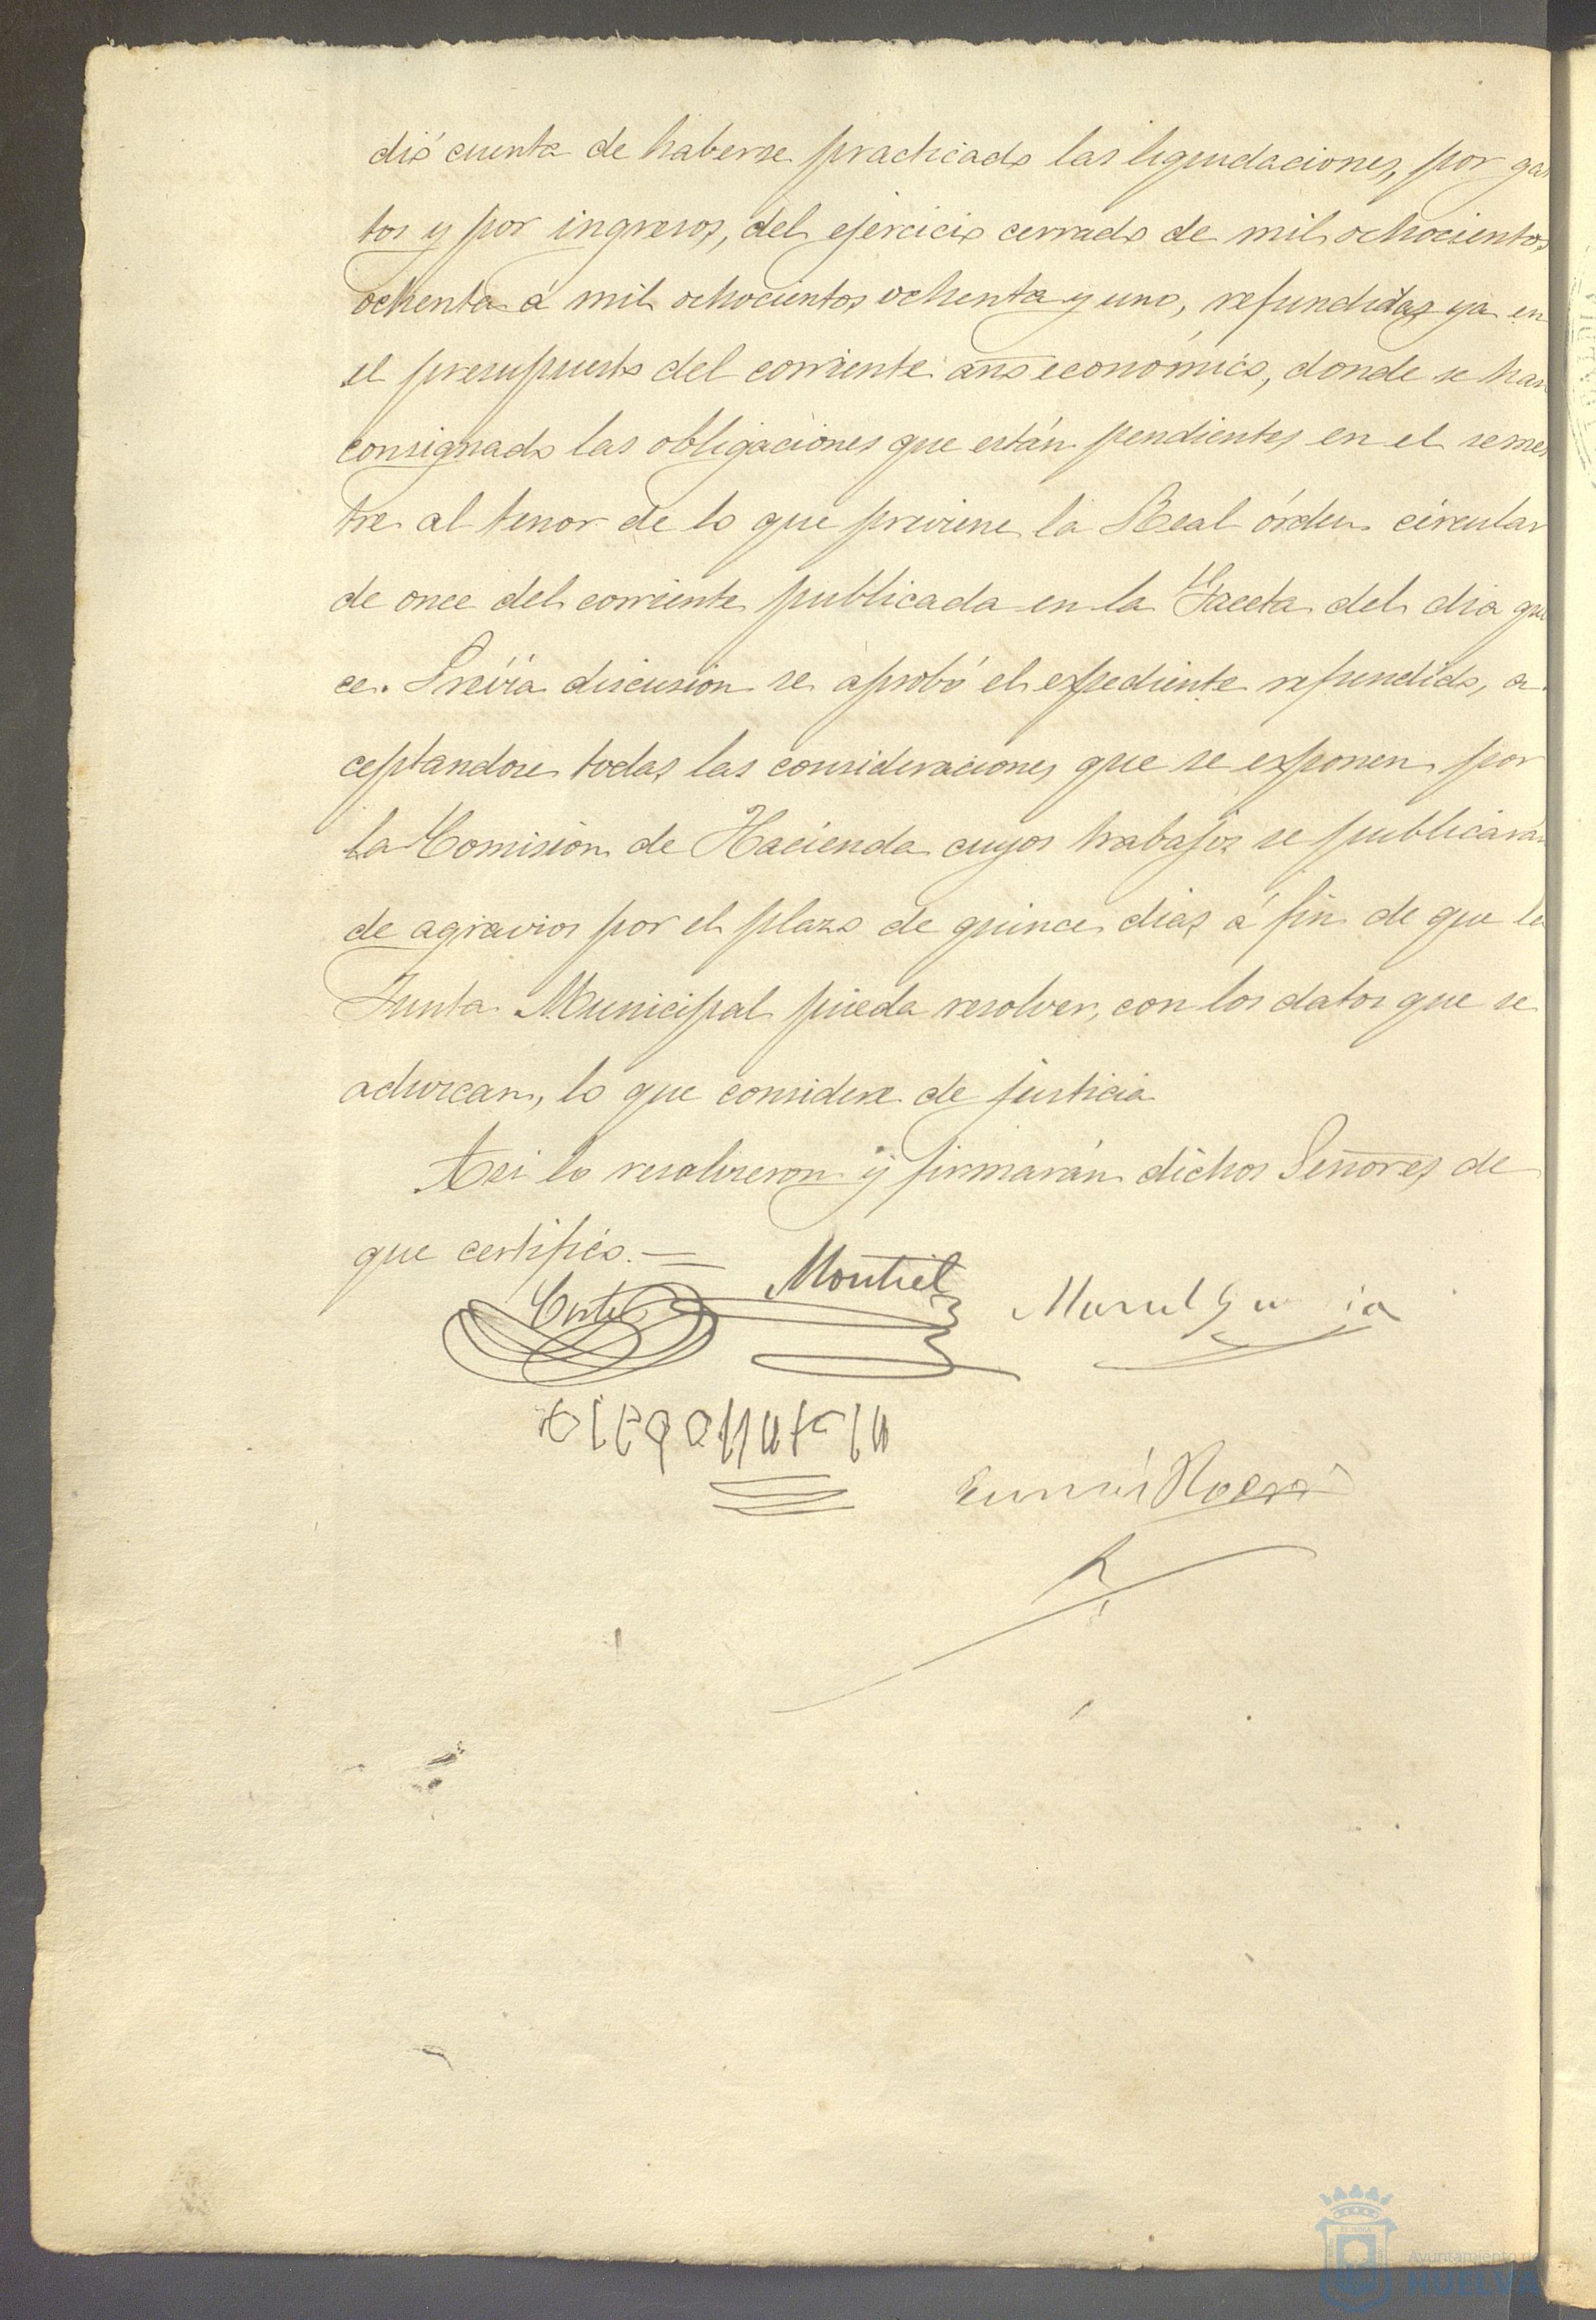 dió cuenta de haberse practicado las liquidaciones, por gas
tos y por ingresos, del ejercicio cerrado de mil ochocientos
ochenta á mil ochocientos ochenta y uno, refundidas ya en
el presupuesto del corriente año económico, donde se han
consignado las obligaciones que están pendientes en el semes
tre al tenor de lo que previene la Real órden circular
de once del corriente publicada en la Gaceta del dia quin
ce. Prévia discusion se aprobó el expediente refundido, a-
ceptandose todas las consideraciones que se exponen por
la Comision de Hacienda cuyos trabajos se publicarán
de agravios por el plazo de quince dias á fin de que la
Junta Municipal pueda resolver, con los datos que se
aduzcan, lo que considere de justicia
Asi lo resolvieron y firmarán dichos Señores de
que certifico. =
Cortes Montiel Manuel Garcia
Ayuntamiento de
HUELVA